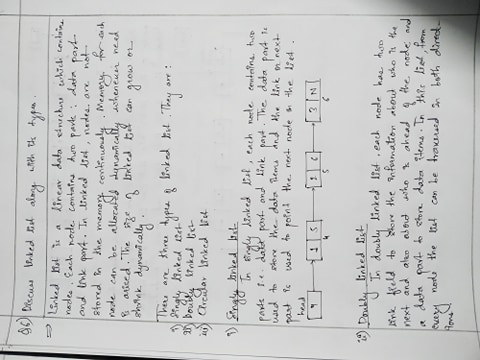 Q6) Discuss linked list along with its types.
⇒ Linked list is a linear data structure which contains
nodes. Each node contains two parts : data part
and link part. In linked list, nodes are not
stored in the memory continuously. Memory for each
node can be allocated dynamically whenever need
is arised. The size of linked list can grow or
shrink dynamically.
There are three types of linked list. They are:
i) Singly linked list
ii) Doubly linked list
iii) Circular linked list
i) Singly linked list
In singly linked list, each node contains two
parts i.e. data part and link part. The data part is
used to store the data items and the link or next
part is used to point the next node in the list.
head
4 1 5 2 6 3 N
4 5 6
ii) Doubly linked list
In doubly linked list, each node has two
link field to store the information about who is the
next and also about who is ahead of the node and
a data part to store data items. In this list, from
every node the list can be traversed in both direct-
ions.